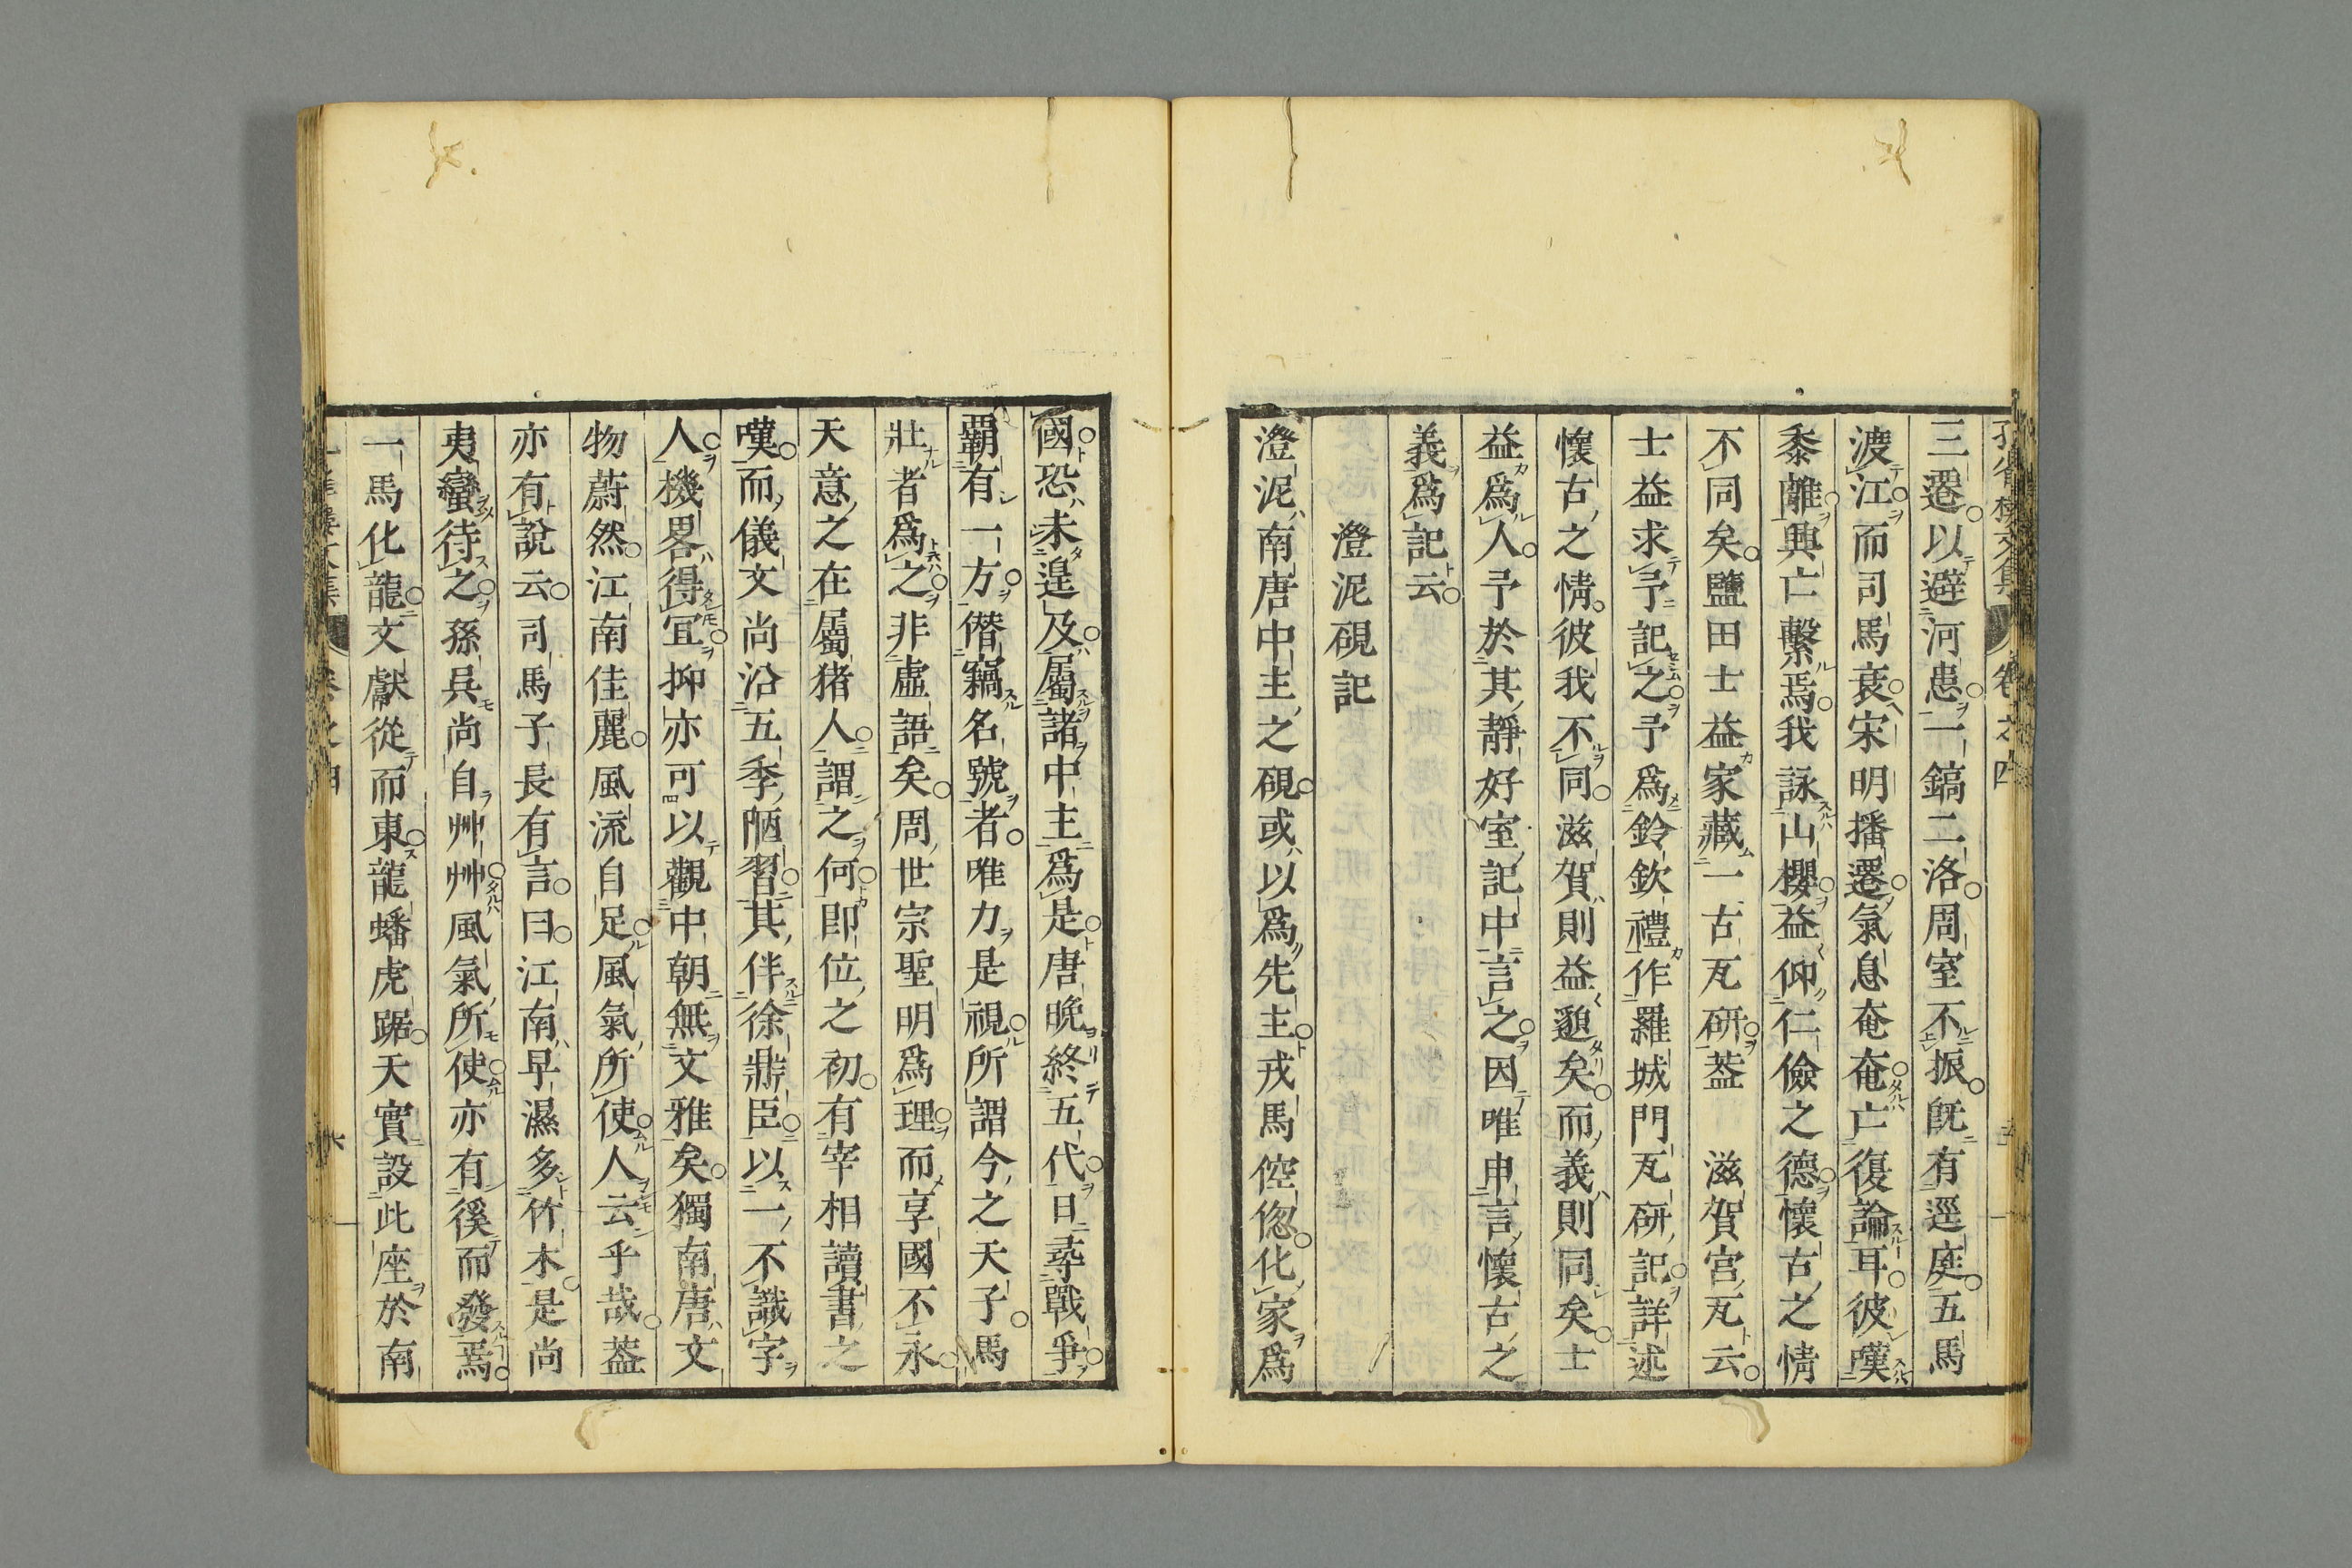 三遷以避河患一鎬二洛周室不振旣有逕庭五馬
渡江而司馬衰宋明播遷氣息奄奄亡復論耳彼嘆
黍離興亡繫焉我詠山櫻益仰仁儉之德懷古之情
不同矣鹽田士益家藏一古瓦研葢 滋賀宮瓦云
士益求予記之予爲鈴欽禮作羅城門瓦研記詳述
懷古之情彼我不同滋賀則益邈矣而義則同矣士
益爲人予於其靜好室記中言之因唯申言懷古之
義爲記云
澄泥硯記
澄泥南唐中主之硯或以爲先主戎馬倥偬化家爲
國恐未遑及屬諸中主爲是唐晚終五代日尋戰爭
覇有一方僭竊名號者唯力是視所謂今之天子馬
壯者爲之非虛語矣周世宗聖明爲理而享國不永
天意之在屬猪人謂之何卽位之初有宰相讀書之
嘆而儀文尚沿五季陋習其伴徐鼎臣以一不識字
人機畧得冝抑亦可以觀中朝無文雅矣獨南唐文
物蔚然江南佳麗風流自足風氣所使人云乎哉葢
亦有說云司馬子長有言曰江南早濕多竹木是尚
夷蠻待之孫吳尚自艸艸風氣所使亦有徯而發焉
一馬化龍文獻從而東龍蟠虎踞天實設此座於南
卷之四
六